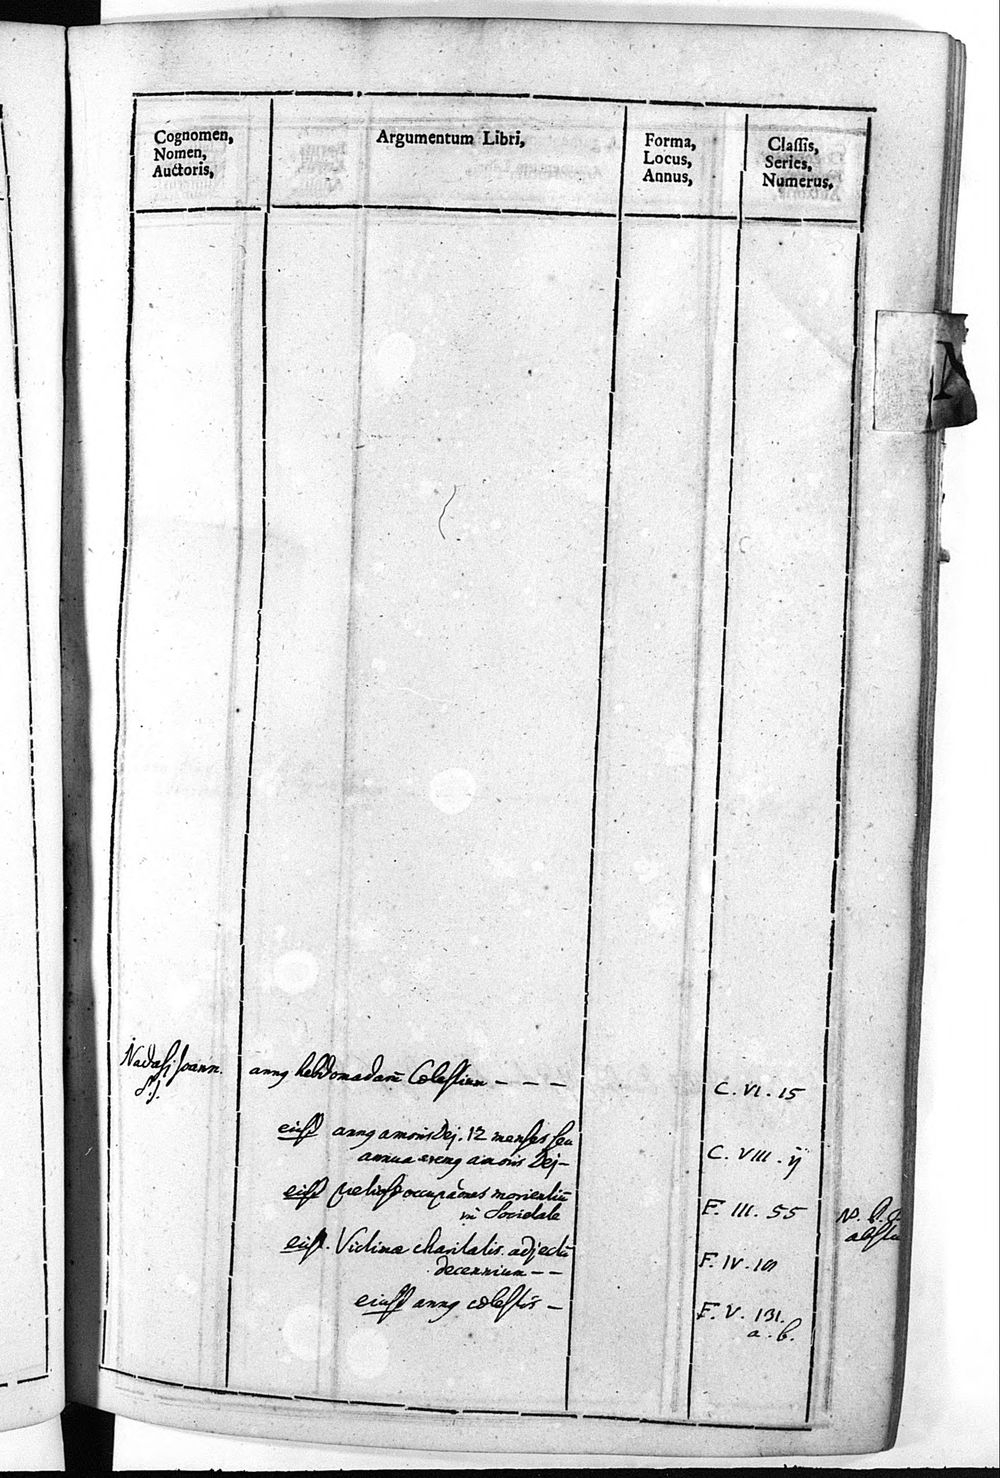 Cognomen,
Nomen,
Auctoris,
Argumentum Libri,
Forma,
Locus,
Annus,
Classis,
Series,
Numerus.
N
Nadasi Joann.
S.J.
anng hebdomadarũ Cœlestium - - - C. VI. 15
eiusd anng amoris Dej. 12 menses seu
annua amoris Dej - C. VIII. ij
eiusd occupãones morientiũ
in Societate F. III. 55
eiusd. Victima charitatis. adjectũ
decennium - - F. IV.
eiusd anng cœlestis - F. V. 131.
a. b.